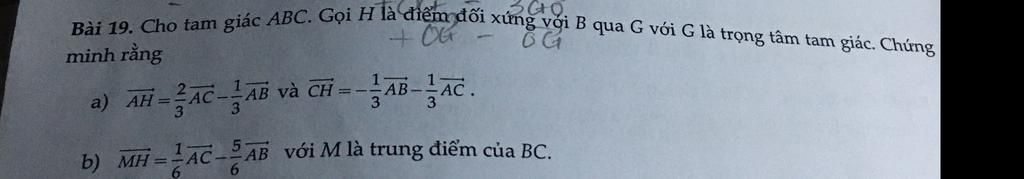 Bài 19. Cho tam giác ABC. Gọi H là điểm đối xứng với B qua G với G là trọng tâm tam giác. Chứng
+ OG - OG
minh rằng
a) \overrightarrow{AH} = \frac{2}{3}\overrightarrow{AC} - \frac{1}{3}\overrightarrow{AB} và \overrightarrow{CH} = -\frac{1}{3}\overrightarrow{AB} - \frac{1}{3}\overrightarrow{AC}.
b) \overrightarrow{MH} = \frac{1}{6}\overrightarrow{AC} - \frac{5}{6}\overrightarrow{AB} với M là trung điểm của BC.